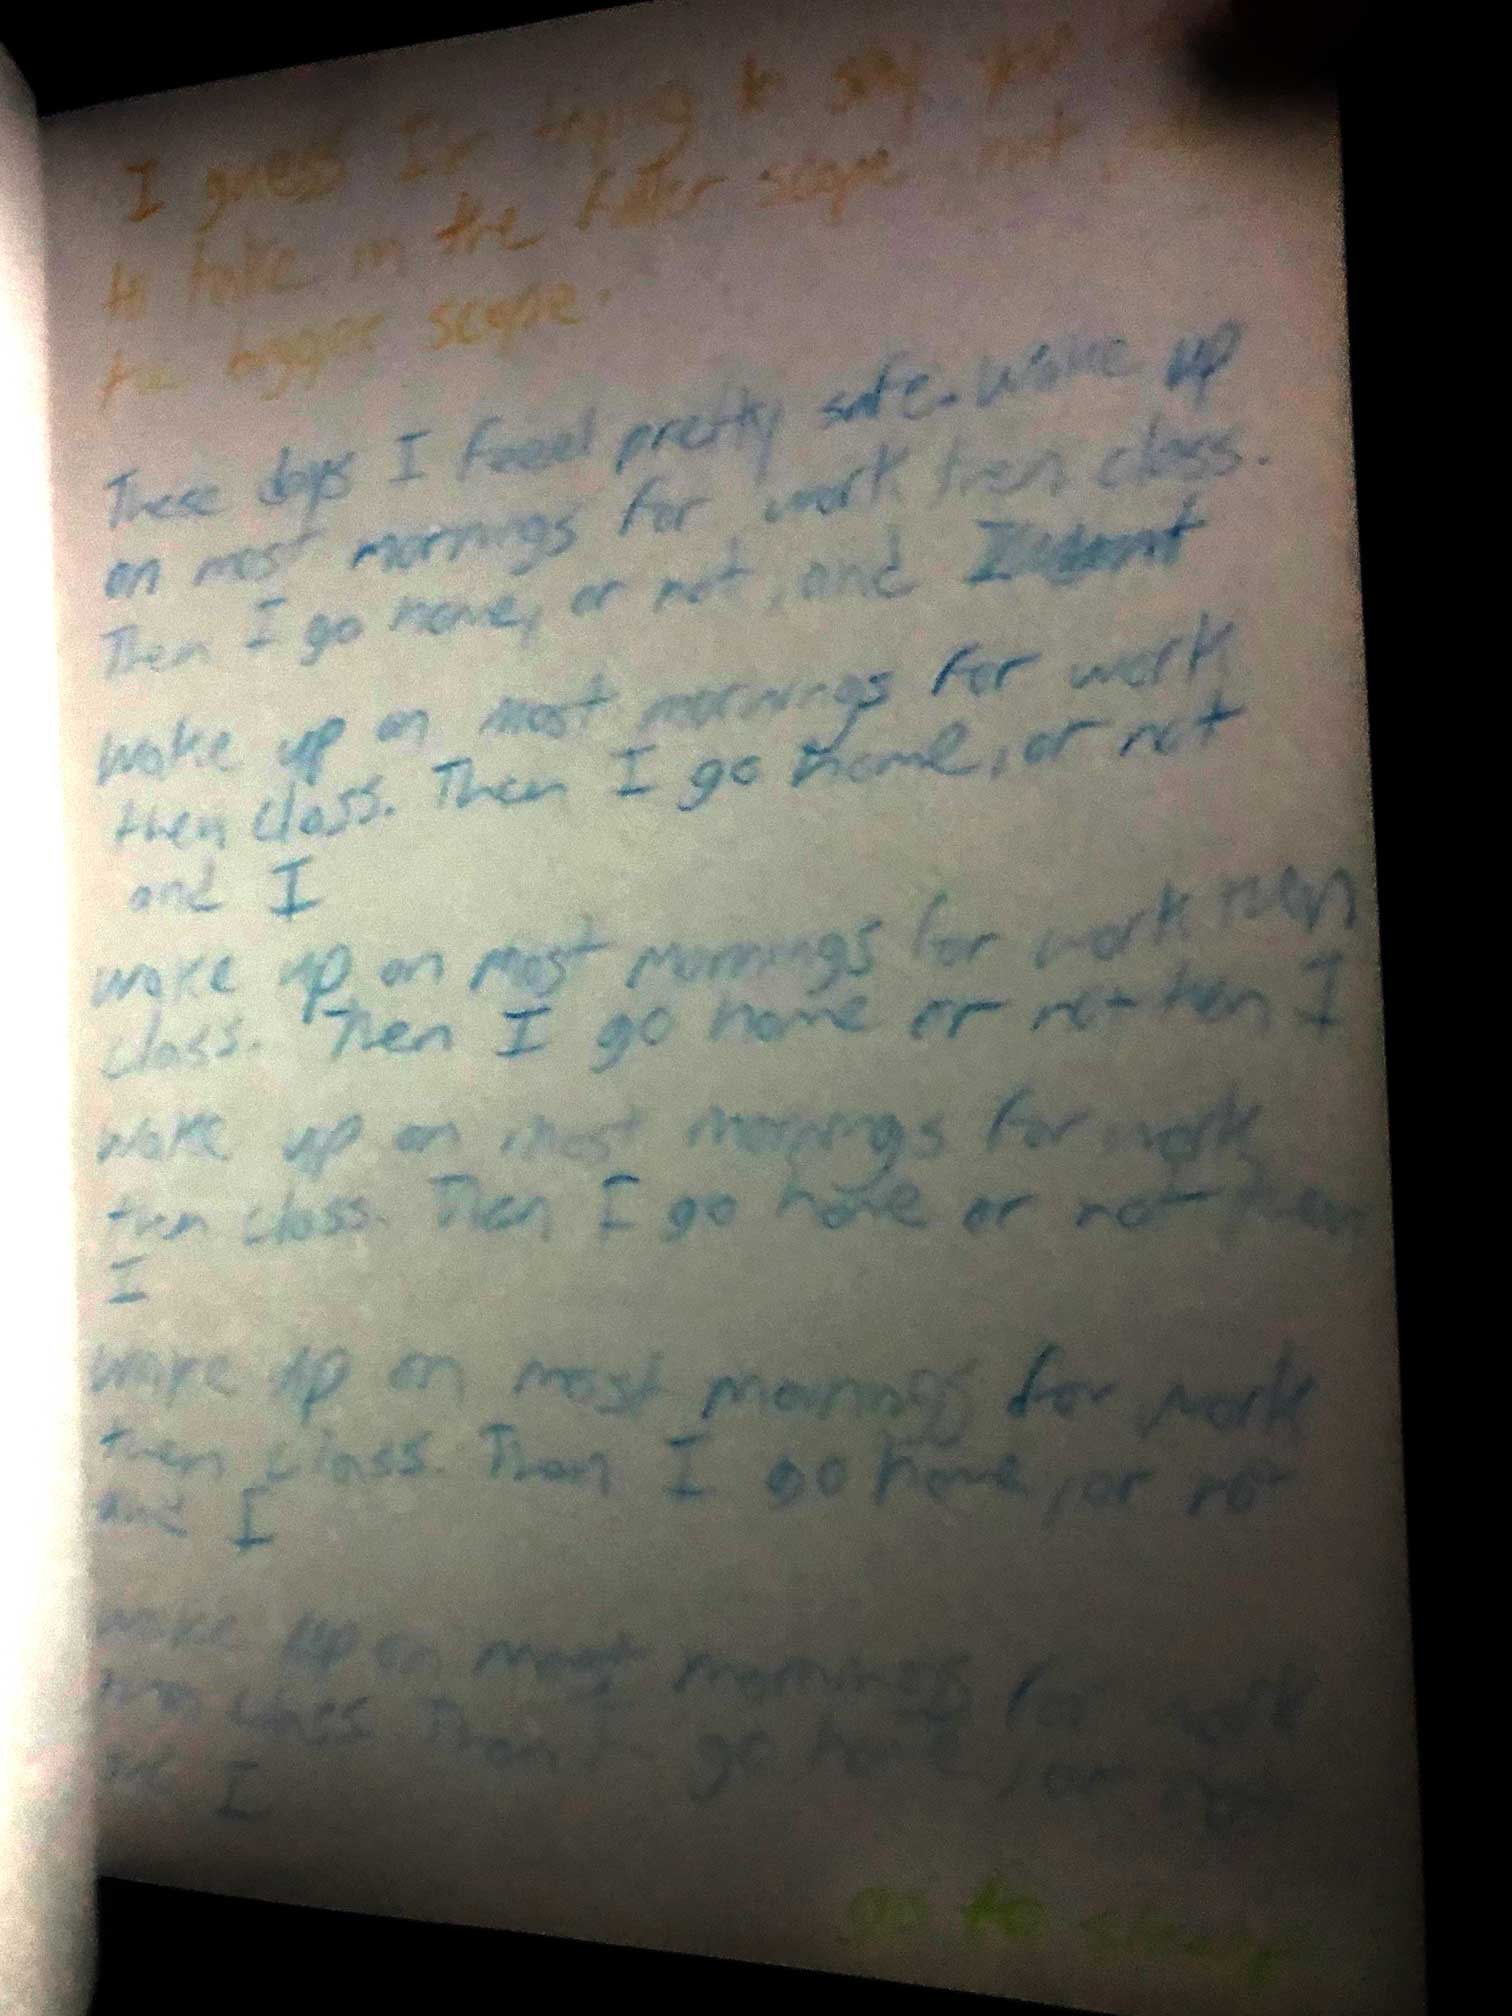 I guess I'm trying to say
to take in the scope not
the bigger scope.
These days I feeel pretty safe. Wake up
on most mornings for work then class.
Then I go home, or not, and I
wake up on most mornings for work
then class. Then I go home, or not
and I
wake up on most mornings for work then
class. Then I go home or not then I
wake up on most mornings for work
then class. Then I go home or not then
I
wake up on most mornings for work
then class. Then I go home, or not
and I
wake up on most mornings for work
then class. Then I go home, or not
and I
go to sleep